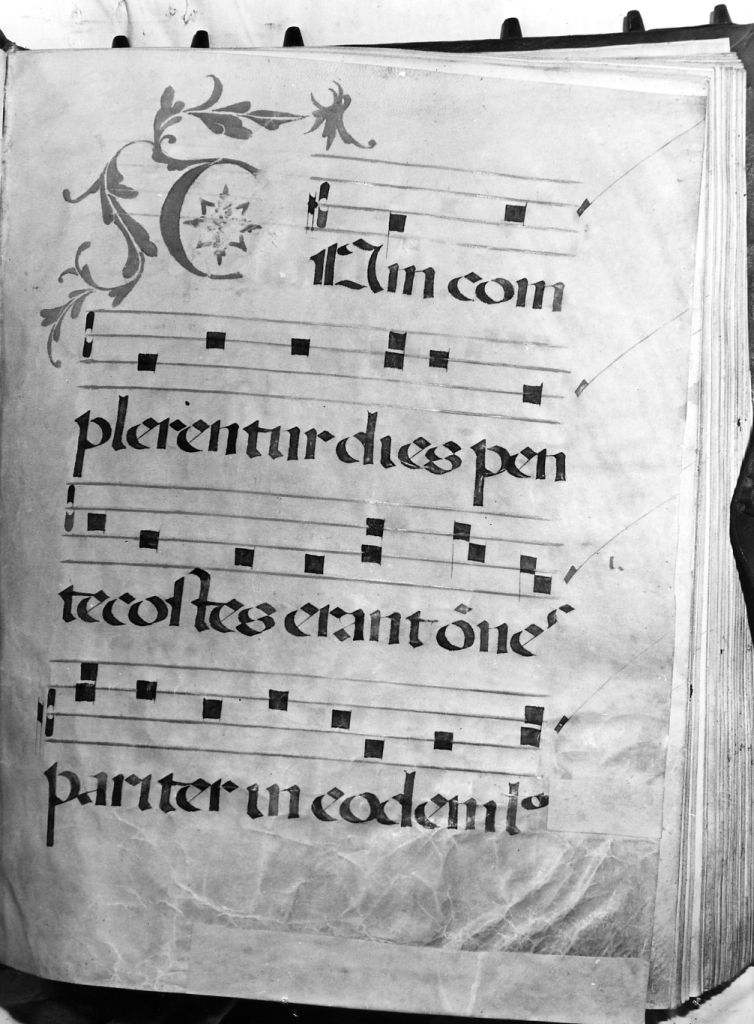 CUm com
plerentur dies pen
tecoſtes erant õnes
pariter in eodem lo